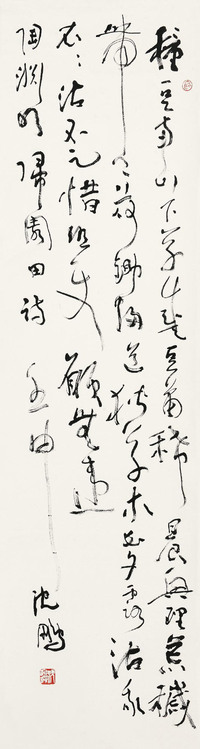 種豆南山下草盛豆苗稀晨興理荒穢
帶月荷鋤歸道狹草木長夕露沾我
衣〻沾不足惜但使願無違
陶淵明歸園田詩
沈鵬